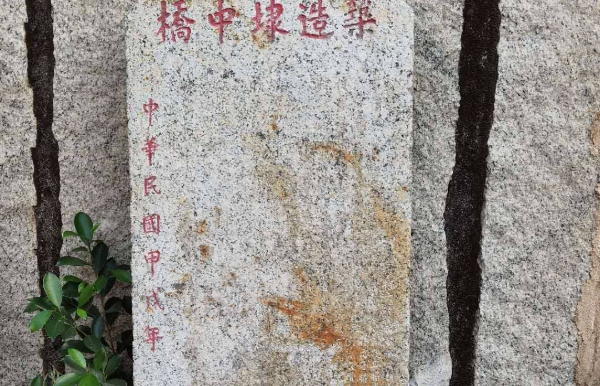 築造埭中橋
中華民國甲戌年